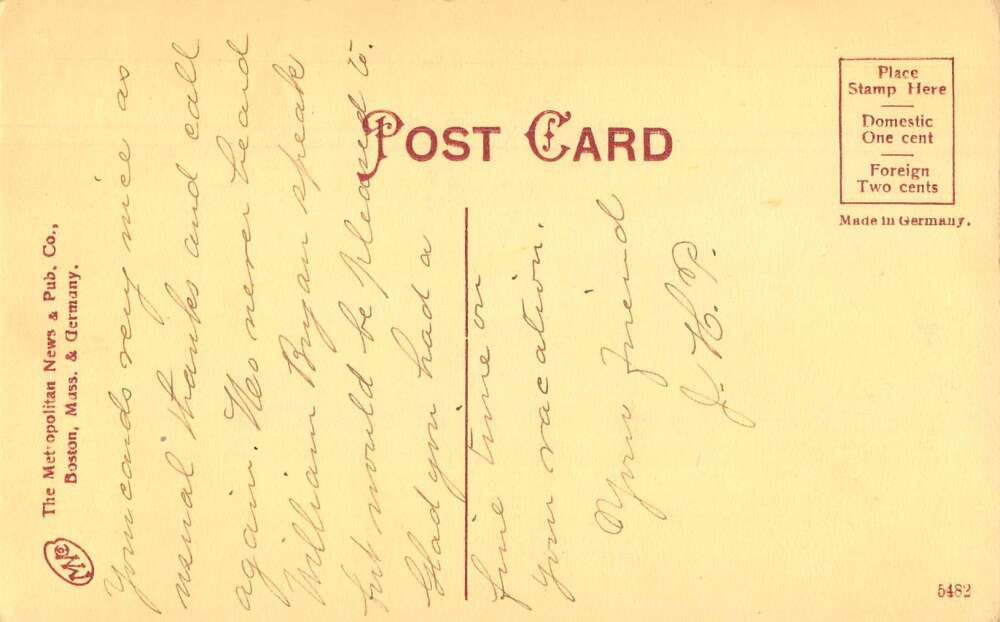 POST CARD
Place
Stamp Here
Domestic
One cent
Foreign
Two cents
Made in Germany.
The Metropolitan News & Pub. Co.,
Boston, Mass. & Germany.
Your cards very nice as
usual thanks and call
again. No never heard
William Bryan speak
but would be pleased to.
Glad you had a
fine time on
your vacation.
Your friend
J. H. P.
5482